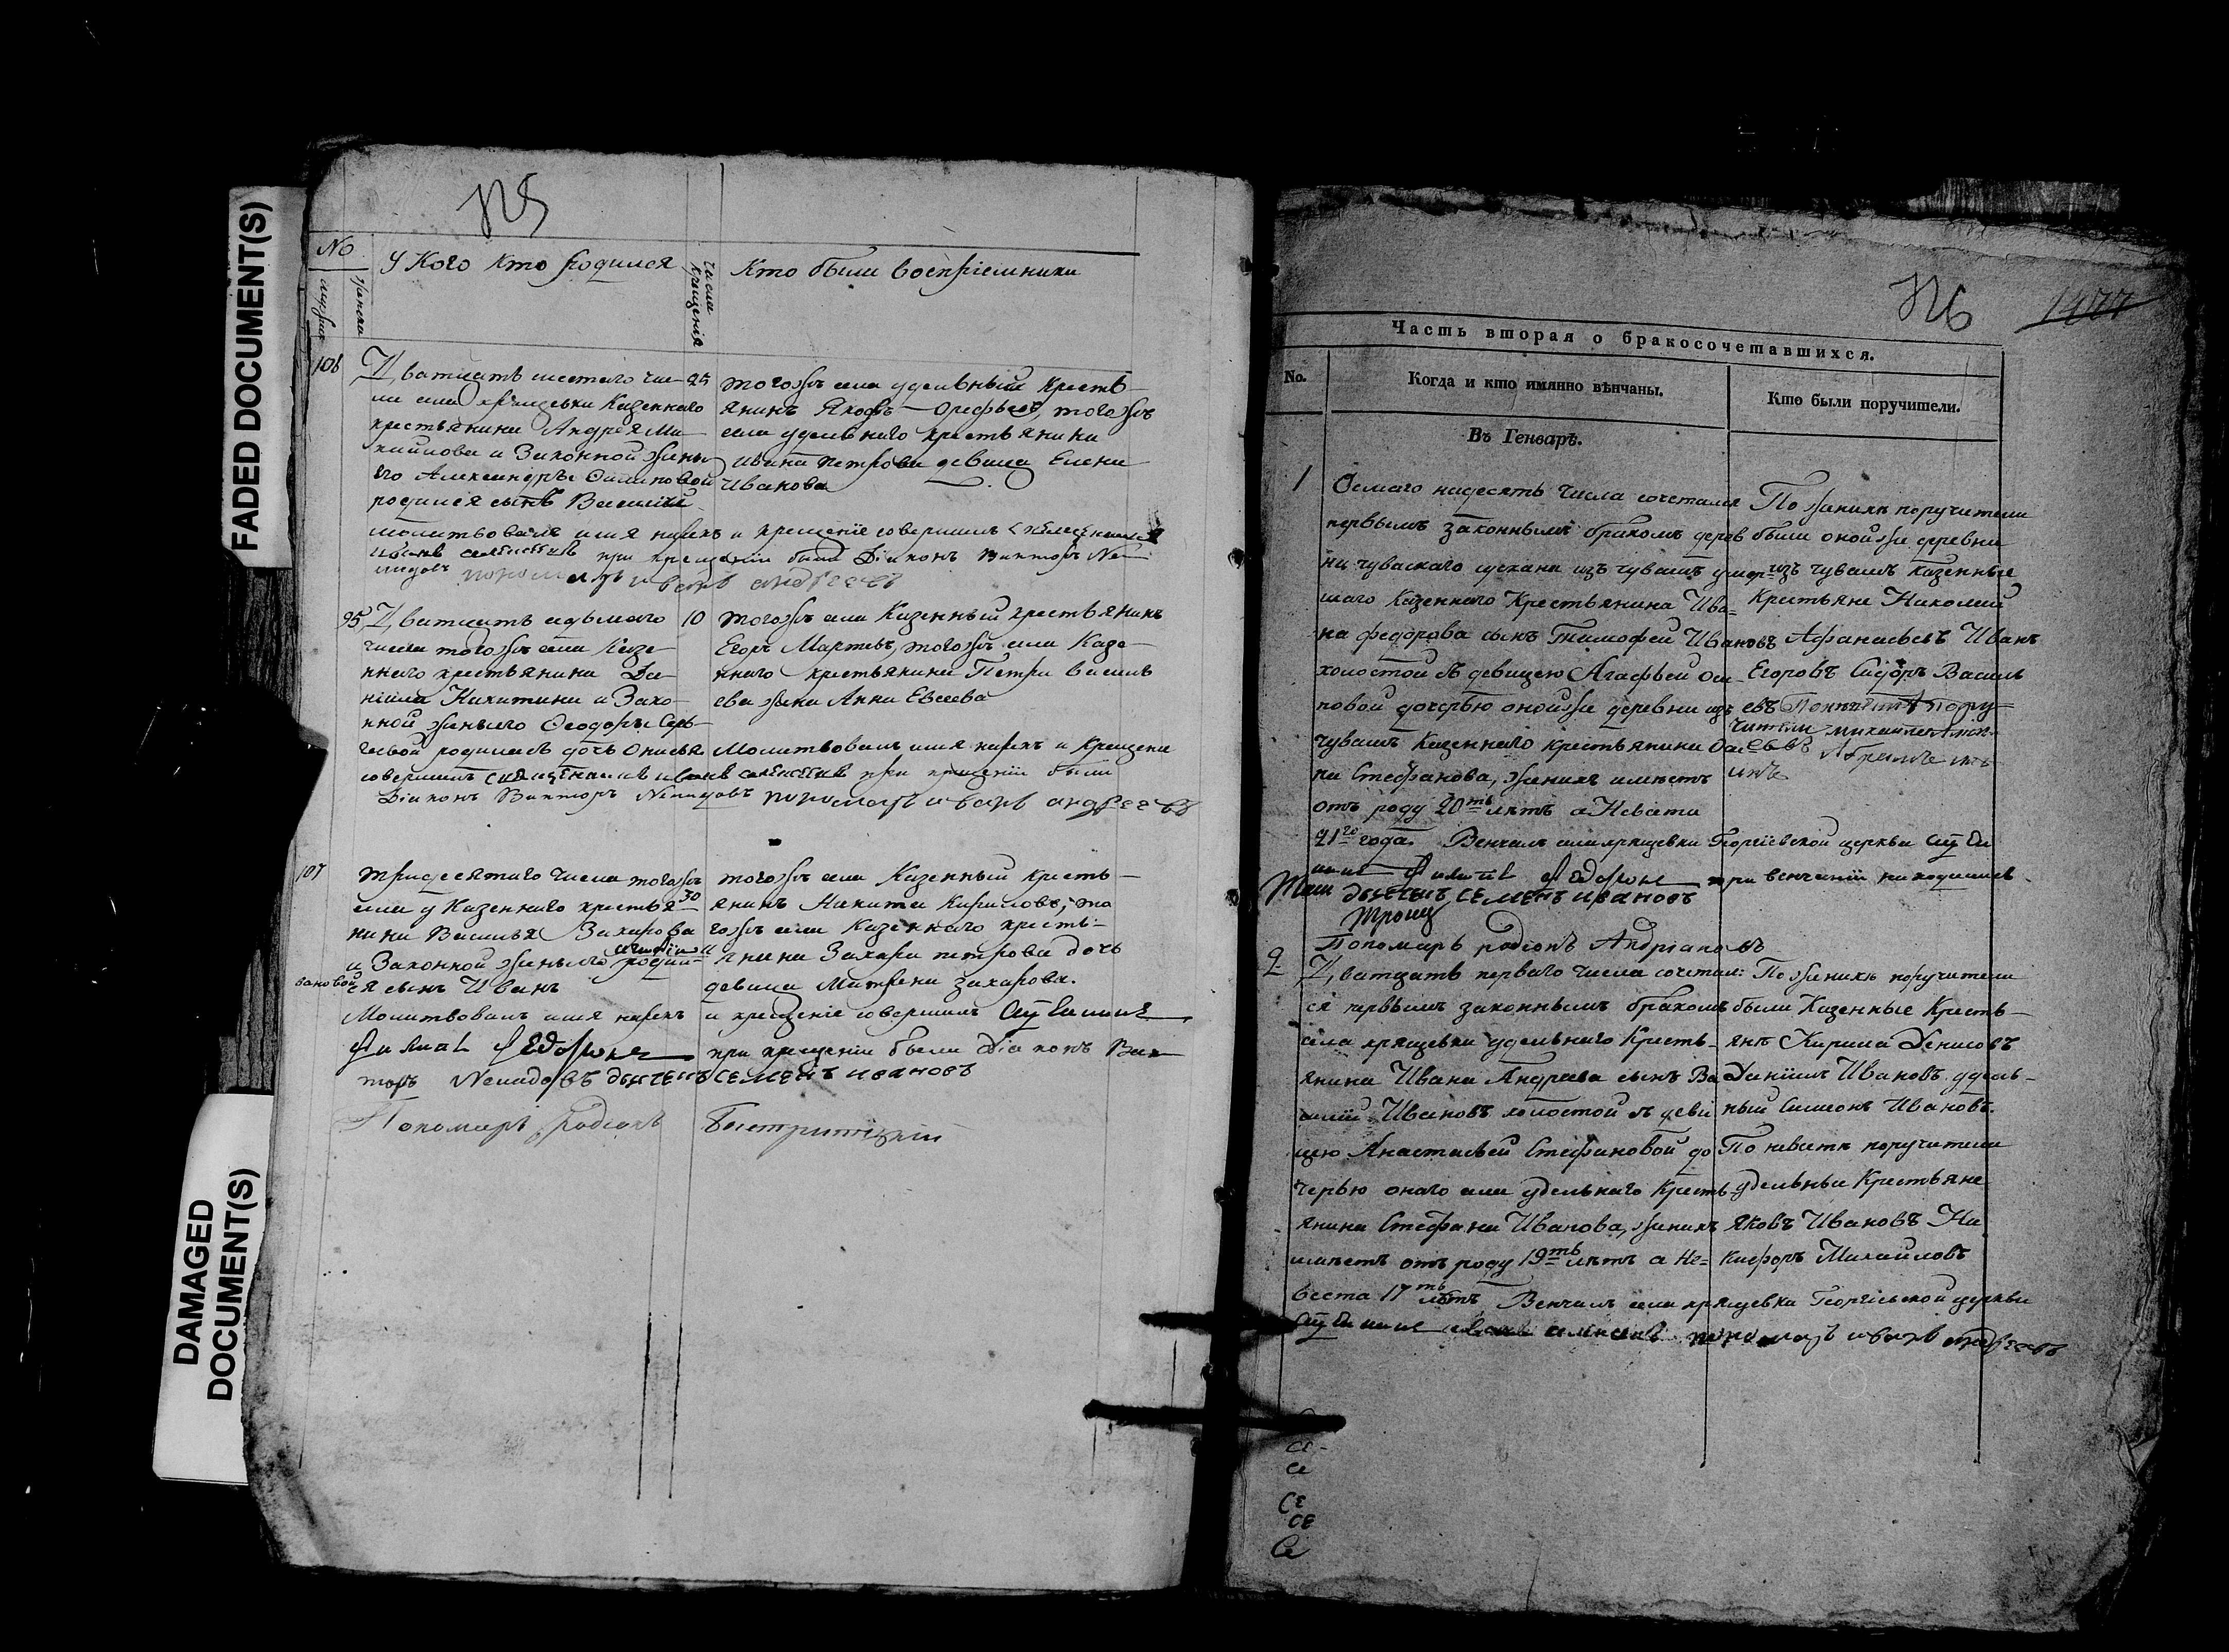 FADED DOCUMENT(S)
DAMAGED
DOCUMENT(S)
325
No
У Кого Кто родился
числа крещенія
Кто были воспріемники
106
Дватцать шестаго чис-
ла села хрящевки Казеннаго
крестьянина Андрея Ми
хайлова и Законной жены
его Александры
родился сынъ Василий
25
тогожъ села удельный кресть-
янинъ Яковъ Орефьевъ, тогожъ
села удельнаго крестьянина
Ивана Петрова девица Елена
Иванова
молитвовалъ имя нарекъ и крещеніе совершилъ священникъ
иванъ алексеевъ при крещеніи были Діаконъ Викторъ
пономарь иванъ андреевъ
95
Дватцать седьмаго
числа тогожъ села Казе-
ннаго крестьянина Да-
ніила Никитина и Зако-
нной жены его Феодоры Сер-
геевой родилась дочь Онисья
10
тогожъ села Казенный крестьянинъ
Егоръ Мартывъ, тогожъ села Казе-
ннаго крестьянина Петра василь
ева жена Анна Евсеева
Молитвовалъ имя нарекъ и Крещение
совершилъ священникъ иванъ алексеевъ при крещеніи были
Діаконъ Викторъ пономарь иванъ андреевъ
107
тридесятаго числа тогожъ
села у Казеннаго крестья
нина Василья Захарова
и Законной жены его родил-
ся сынъ Иванъ
30
тогожъ села Казенный кресть-
янинъ Никита Кириловъ; то
гожъ села Казеннаго кресть-
янина Захара петрова дочь
девица Матрена захарова.
Молитвовалъ имя нарекъ и крещеніе совершилъ
при крещеніи были Діаконъ Вик
торъ дьячекъ семенъ ивановъ
Пономарь Родіонъ
326
1477
Часть вторая о бракосочетавшихся.
No.
Когда и кто имянно вѣнчаны.
Кто были поручители.
Въ Генварѣ.
1
Осмаго надесять числа сочетался
первымъ законнымъ бракомъ дерев
ни чуваскаго сускана изъ чувашъ умер-
шаго Казеннаго Крестьянина Ива-
на федорова сынъ Тимофей Ивановъ
холостой съ девицею Агафьей Оси-
повой дочерью онойже деревни изъ
чувашъ Казеннаго крестьянина Оси
па Стефанова, женихъ имѣетъ
отъ роду 20ть лѣтъ а Невеста
21го года. Венчалъ села хрящевки Георгіевской церкви
при венчаніи находились
дьячекъ семенъ ивановъ
Пономарь родіонъ Андріановъ
По женихѣ поручители
были онойже деревни
изъ чувашъ Казенные
Крестьяне Николай
Афанасьевъ Иванъ
Егоровъ Сидоръ Василь
евъ
2
Дватцать перваго числа сочетал:
ся первымъ законнымъ бракомъ
села хрящевки удельнаго Кресть-
янина Ивана Андреева сынъ Ва
силій Ивановъ холостой съ деви
цею Анастасьей Стефановой до
черью онаго села удельнаго Кресть
янина Стефана Иванова, женихъ
имѣетъ отъ роду 19ть лѣтъ а Не-
веста 17ть лѣтъ Венчалъ села хрящевки Георгіевской церкви
иванъ алексеевъ пономарь иванъ андреевъ
По женихѣ поручители
были Казенные Кресть-
янѣ Кирила Денисовъ
Данiилъ Ивановъ удель-
ный Симеонъ Ивановъ.
По невестѣ поручители
удельные Крестьяне
Яковъ Ивановъ Ни
кифоръ Михайловъ
Се
Се
СЕ
СЕ
Се